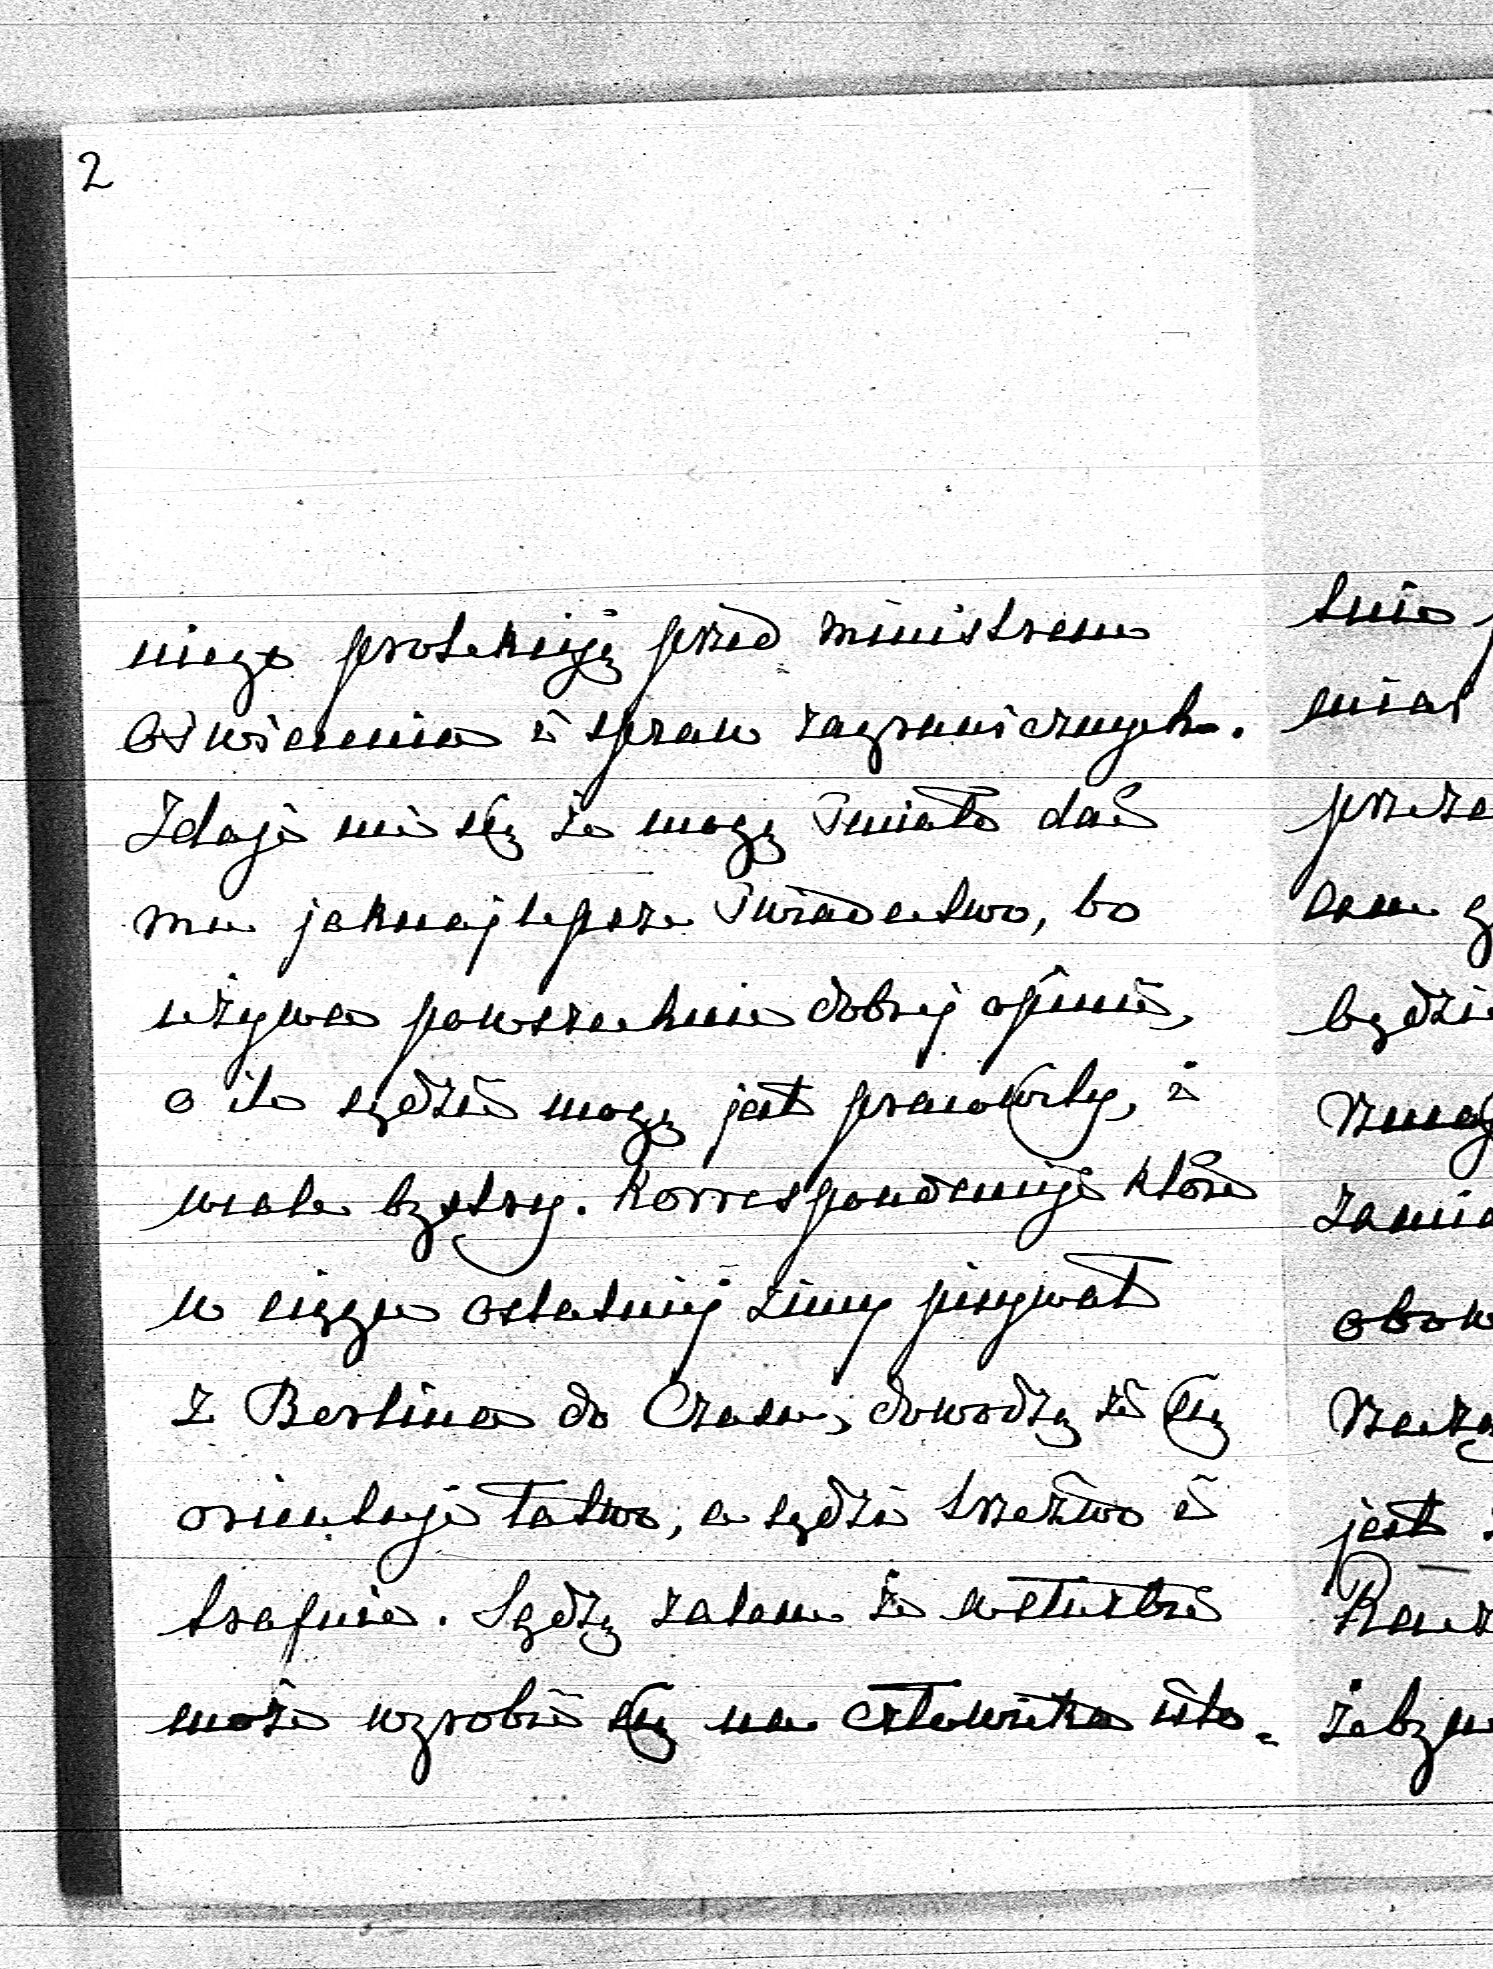 2
niego protekcyję przed ministrem
Oświecenia i spraw zagranicznych.
Zdaje mi się że mogę śmiało dać
mu jaknajlepsze świadectwo, bo
używa powszechnie dobrej opinii,
o ile sądzić mogę jest pracowity, i
wcale bystry. Korrespondencyje które
w ciągu ostatniej zimy pisywał
z Berlina do Czasu, dowodzą że się
orientuje łatwo, a sądzi trzeźwo i
trafnie. Sądzę zatem że
może wyrobić się na człowieka isto-
tnie
miar
przeze
cem
będzie
zamia
obow
jest
żebym